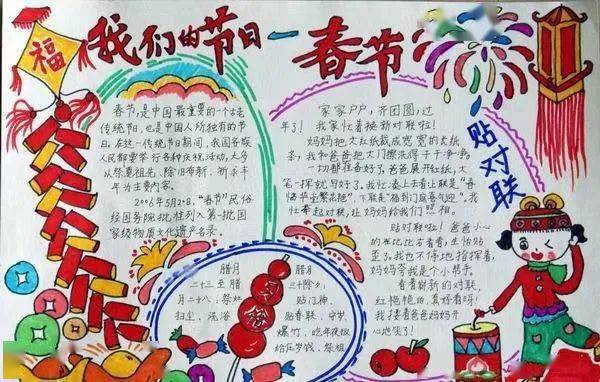 福
我们的节日－春节
春节，是中国最重要的一个古老
传统节日，也是中国人所独有的节
日。在这一传统节日期间，我国各族
人民都要举行各种庆祝活动，大多
以祭奠祖先、除旧布新、祈求丰
年为主要内容。
2006年5月20日，“春节”民俗
经国务院批准列入第一批国
家级物质文化遗产名录。
家家户户，齐团圆，过
年了！我家忙着换新对联啦！
妈妈把大红纸裁成宽宽的长纸
条，我和爸爸把大门擦洗得干干净净，
一切都准备好了。爸爸展开红纸，大
笔一挥就写好了。我忙凑上去看上联是“春
临华堂繁花艳”，下联是“福到门庭喜气迎”，我
忙举起对联，让妈妈给我们照相。
贴对联啦！爸爸小心
贴对联
腊月
二十三至腊
月二十八，祭灶
扫尘，洗浴
腊月
三十除夕，
贴门神，
贴春联，守岁，
爆竹，吃年夜饭
给压岁钱，祭祖
妈妈夸我是个小帮手。
看着崭新的对联，
红艳艳的，真好看呀！
我搂着爸爸妈妈开
心地笑了！